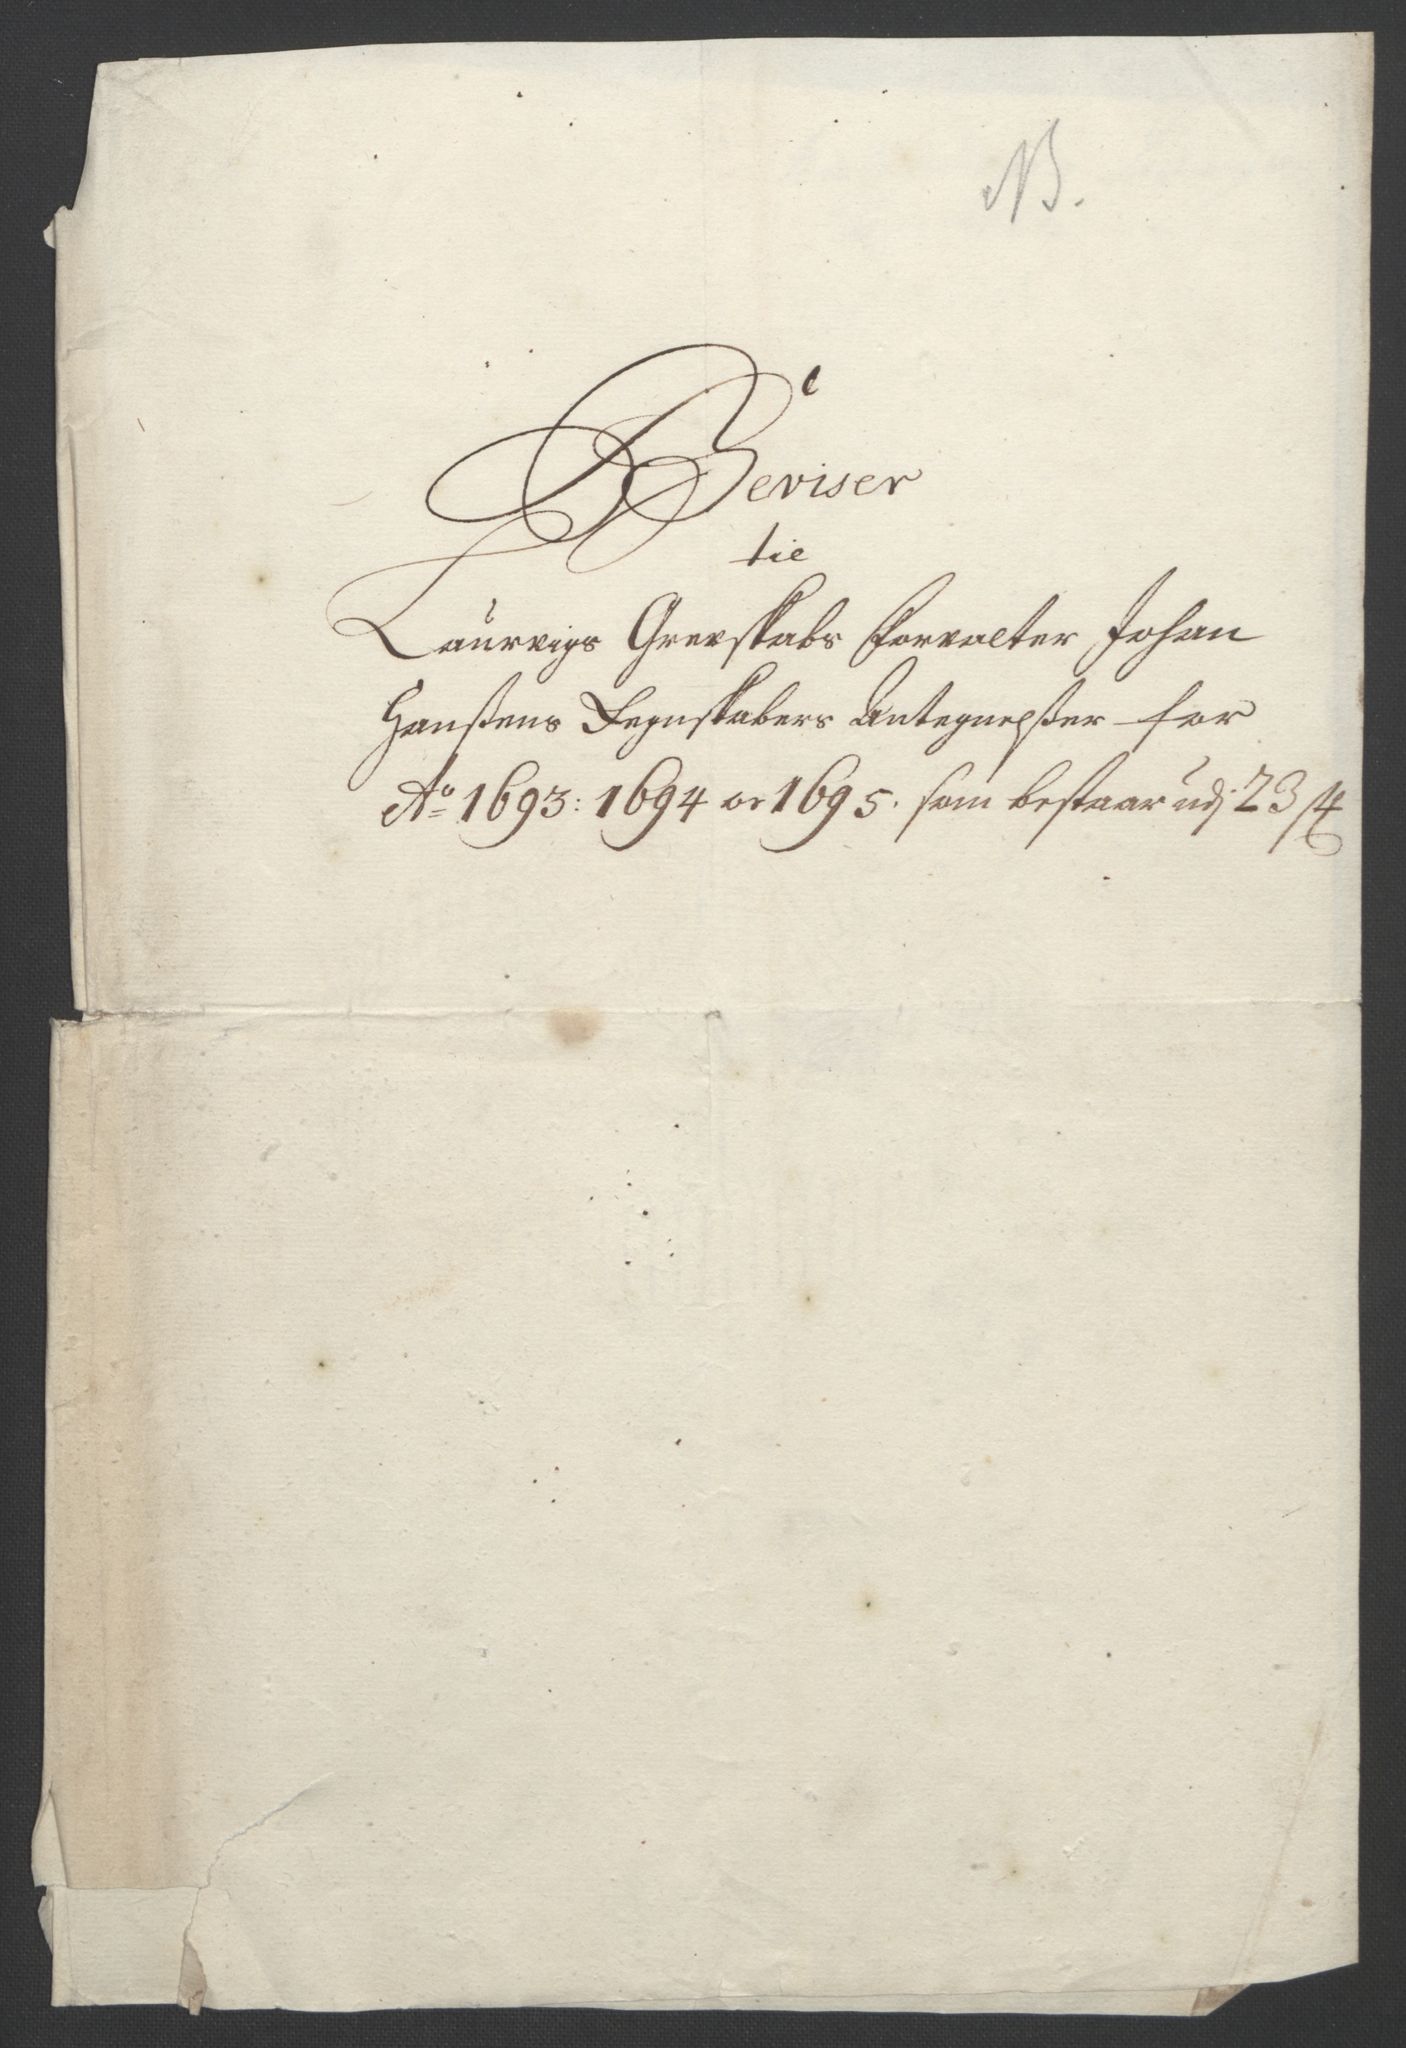 NB.
Beviser
til
Laurvigs Grevskabs Forvalter Johan
Hanßens Regnskabers Antegnelßer for
Ao 1693: 1694 oc 1695. som bestaar udj 23